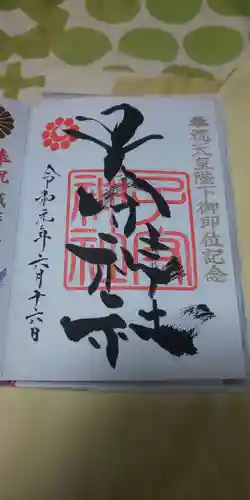 奉祝天皇陛下御即位記念
神社
令和元年六月十六日
奉祝